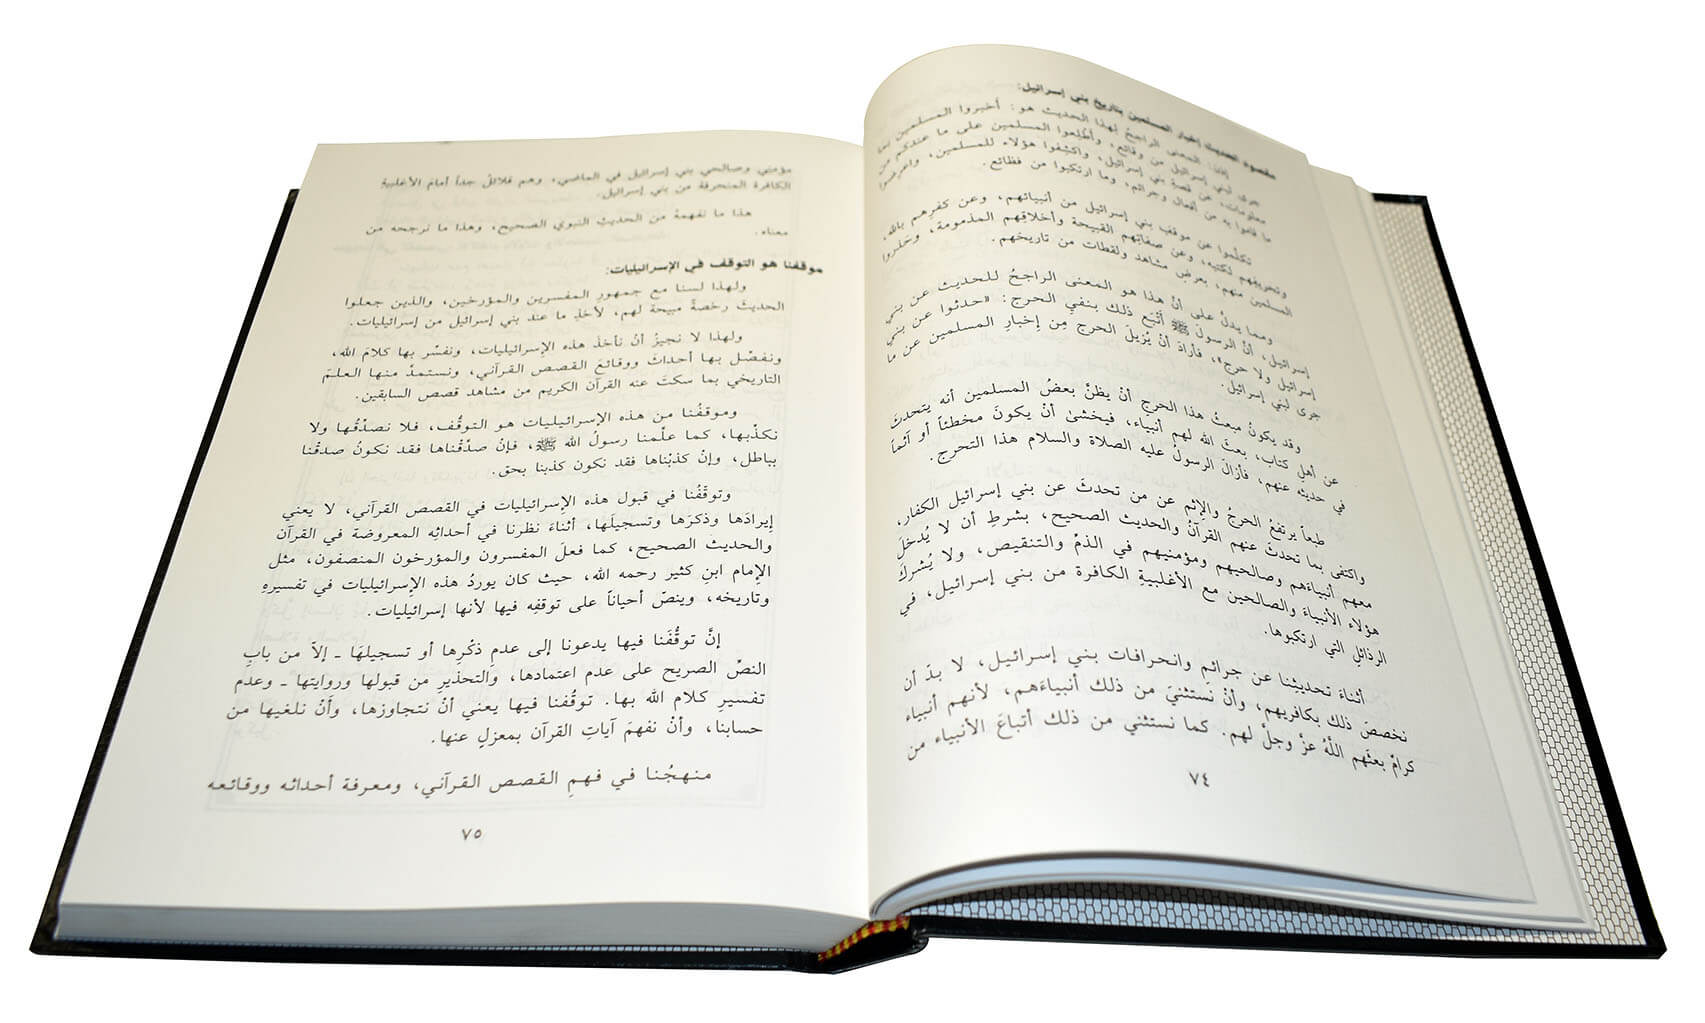 مقصود الحديث إخبار المسلمين بتاريخ بني إسرائيل:
إذن: المعنى الراجحُ لهذا الحديث هو: أخبروا المسلمين بما
جرى لبني إسرائيل من وقائع، وأطلِعوا المسلمين على ما عندكم من
معلومات، عن قصة بني إسرائيل، واكشِفوا هؤلاء للمسلمين، واعرضوا
ما قاموا به من أفعال وجرائم، وما ارتكبوا من فظائع.
تكلّموا عن موقفِ بني إسرائيل من أنبيائهم، وعن كفرِهم بالله،
وتحريفِهم لكتبِه، وعن صفاتِهم القبيحة وأخلاقِهم المذمومة، وحَذِّروا
المسلمين منهم، بعرضِ مشاهد ولقطات من تاريخهم.
ومما يدلُّ على أنَّ هذا هو المعنى الراجحُ للحديث عن بني
إسرائيل، أنَّ الرسولَ ﷺ أَتْبَع ذلك بنفيِ الحرج: «حدثوا عن بني
إسرائيل ولا حرج»، فأرادَ أنْ يُزيلَ الحرج مِن إخبارِ المسلمين عن ما
جرى لبني إسرائيل.
وقد يكونُ مبعثُ هذا الحرجِ أنْ يظنَّ بعضُ المسلمين أنه يتحدثُ
عن أهلِ كتاب، بعثَ الله لهم أنبياء، فيخشىٰ أنْ يكونَ مخطئاً أو آثماً
في حديثه عنهم، فأزالَ الرسولُ عليه الصلاة والسلام هذا التحرج.
طبعاً يرتفعُ الحرجُ والإثم عن من تحدثَ عن بني إسرائيل الكفار،
واكتفى بما تحدثَ عنهم القرآنُ والحديث الصحيح، بشرطِ أن لا يُدخلَ
معهم أنبياءَهم وصالحيهم ومؤمنيهم في الذمِّ والتنقيص، ولا يُشركَ
هؤلاء الأنبياءَ والصالحين مع الأغلبيةِ الكافرة من بني إسرائيل، في
الرذائلِ التي ارتكبوها.
أثناءَ تحديثِنا عن جرائمِ وانحرافات بني إسرائيل، لا بدّ أن
نخصصَ ذلك بكافريهم، وأنْ نستثنيَ من ذلك أنبياءَهم، لأنهم أنبياء
كرامٌ بعثَهم اللَّهُ عزَّ وجلّ لهم. كما نستثني من ذلك أتباعَ الأنبياء من
٧٤
مؤمني وصالحي بني إسرائيل في الماضي، وهم قلائلُ جداً أمامَ الأغلبيةِ
الكافرة المنحرفة من بني إسرائيل.
هذا ما نفهمهُ من الحديثِ النبوي الصحيح، وهذا ما نرجحه من
معناه.
موقفنا هو التوقف في الإسرائيليات:
ولهذا لسنا مع جمهورِ المفسرين والمؤرخين، والذين جعلوا
الحديثَ رخصةً مبيحة لهم، لأخذِ ما عند بني إسرائيل من إسرائيليات.
ولهذا لا نجيزُ أنْ نأخذَ هذه الإسرائيليات، ونفسِّر بها كلامَ الله،
ونفصِّل بها أحداثَ ووقائعَ القصص القرآني، ونستمدُّ منها العلمَ
التاريخي بما سكتَ عنه القرآن الكريم من مشاهد قصص السابقين.
وموقفُنا من هذه الإسرائيليات هو التوقُّف، فلا نصدِّقُها ولا
نكذِّبها، كما علّمنا رسولُ الله ﷺ، فإنْ صدَّقْناها فقد نكونُ صدقْنا
بباطل، وإنْ كذبْناها فقد نكون كذبنا بحق.
وتوقّفُنا في قبولِ هذه الإِسرائيليات في القصص القرآني، لا يعني
إيرادَها وذكرَها وتسجيلَها، أثناءَ نظرنا في أحداثِه المعروضة في القرآن
والحديث الصحيح، كما فعلَ المفسرون والمؤرخون المنصفون، مثل
الإمام ابنِ كثير رحمه الله، حيث كان يوردُ هذه الإسرائيليات في تفسيرِهِ
وتاريخه، وينصّ أحياناً على توقفِه فيها لأنها إسرائيليات.
إنَّ توقُّفَنا فيها يدعونا إلى عدمِ ذكْرِها أو تسجيلهَا ـ إلاّ من بابِ
النصِّ الصريح على عدم اعتمادها، والتحذيرِ من قبولها وروايتها ـ وعدم
تفسيرِ كلام الله بها. توقُّفنا فيها يعني أنْ نتجاوزها، وأنْ نلغيها من
حسابنا، وأنْ نفهمَ آياتِ القرآن بمعزلٍ عنها.
منهجُنا في فهمِ القصص القرآني، ومعرفة أحداثه ووقائعه
٧٥